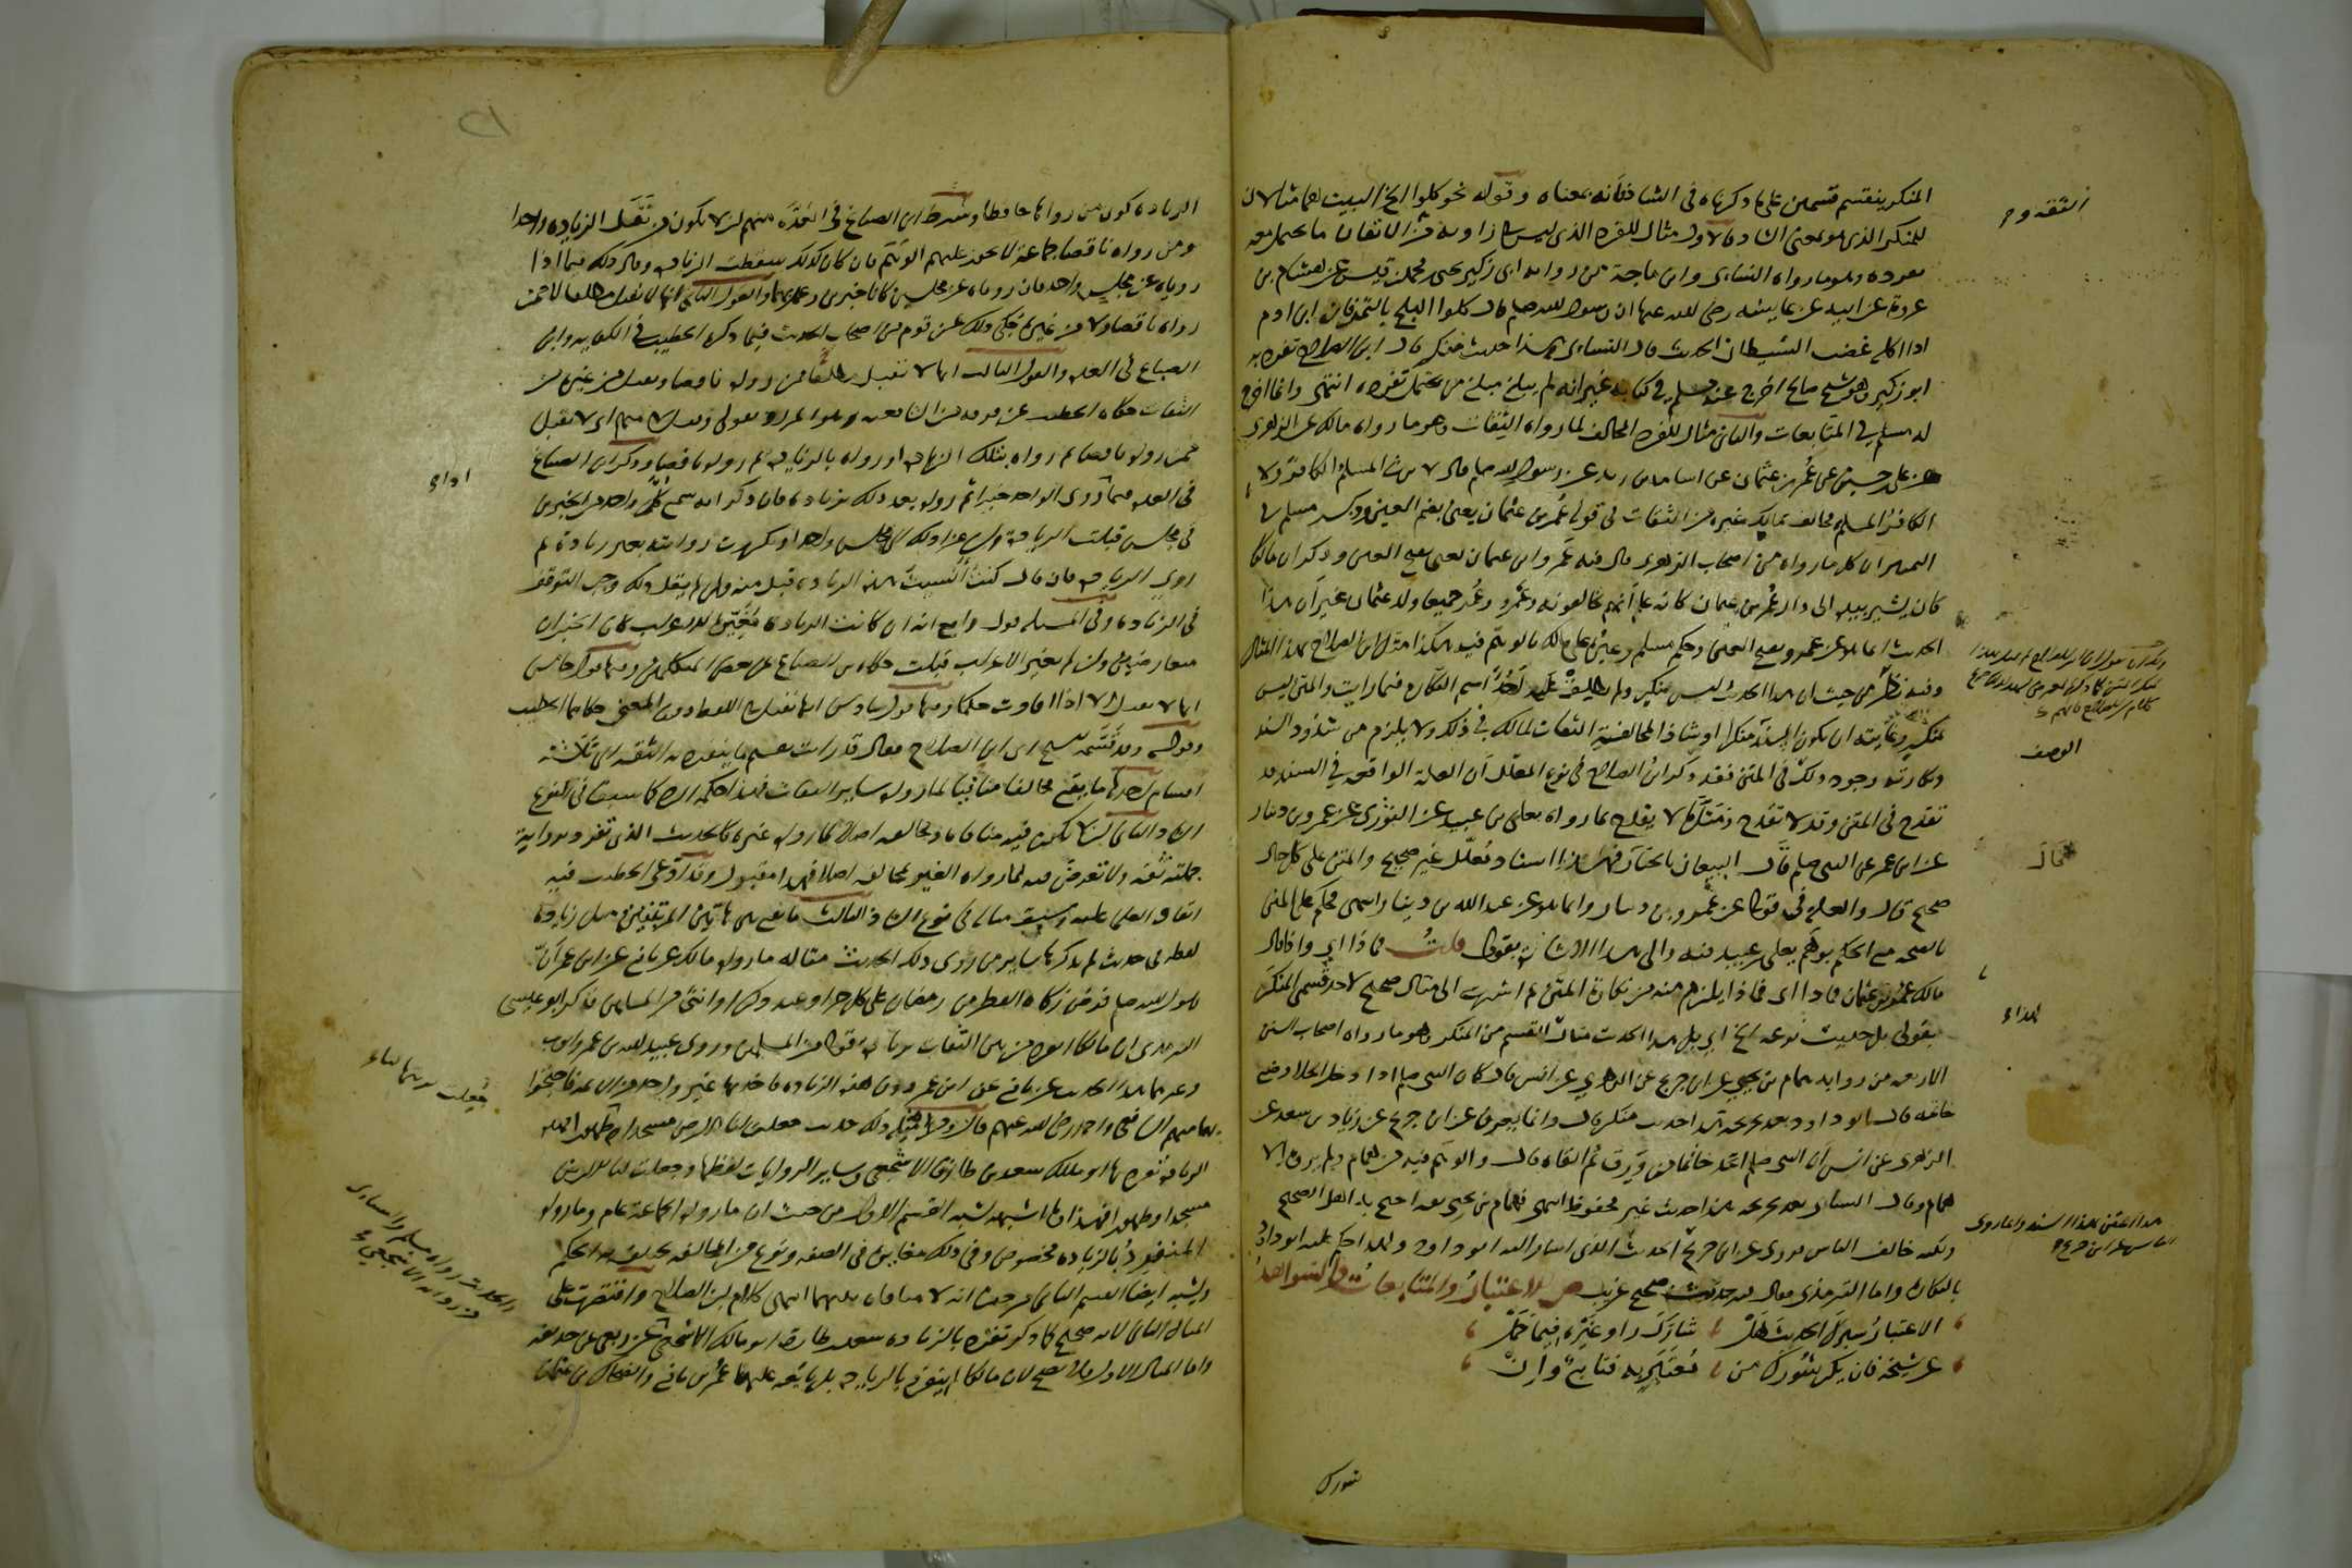 المنكر ينقسم قسمين على ما ذكرناه في الشاذ فانه بمعناه وقوله نحو كلوا البلح البيت هما مثالان
للمنكر الذي هو بمعنى الشاذ فالاول مثال للفرد الذي ليس في راويه من الاتقان ما يحتمل معه
تفرده وهو ما رواه النسائي وابن ماجة من رواية ابي زكير يحيى بن محمد بن قيس عن هشام بن
عروة عن ابيه عن عايشه رضي الله عنها ان رسول الله صلم قال كلوا البلح بالتمر فان ابن ادم
اذا اكله غضب الشيطان الحديث قال النسائي هذا حديث منكر قال ابن الصلاح تفرد به
ابو زكير وهو شيخ صالح اخرج عنه مسلم في كتابه غير انه لم يبلغ مبلغ من يحتمل تفرده انتهى وانما اخرج
له مسلم في المتابعات والثاني مثال للفرد المخالف لما رواه الثقات وهو ما رواه مالك عن الزهري
عن علي بن حسين عن عُمر بن عثمان عن اسامة بن زيد عن رسول الله صلم قال لا يرث المسلم الكافر ولا
الكافر المسلم فخالف مالك غيره من الثقات في قوله عُمر بن عثمان يعني بضم العين وذكر مسلم في
التمييز ان كل من رواه من اصحاب الزهري قال فيه عَمرو بن عثمان يعني بفتح العين وذكر ان مالكا
كان يشير بيده الى دار عُمر بن عثمان كانه علم انهم يخالفونه وعَمرو وعُمر جميعا ولد عثمان غير ان هذا
الحديث انما هو عن عمرو بفتح العين وحكم مسلم وغيره على مالك بالوهم فيه هكذا مثل ابن الصلاح بهذا المثال
وفيه نظر من حيث ان هذا الحديث ليس بمنكر ولم يطلق عليه احد اسم النكارة فيما رايت والمتن ليس
بمنكر وغايته ان يكون السند منكرا او شاذا لمخالفة الثقات لمالك في ذلك ولا يلزم من شذوذ السند
ونكارته وجود ذلك في المتن فقد ذكر ابن الصلاح في نوع المعلل ان العلة الواقعه في السند قد
تقدح في المتن وقد لا تقدح ومثل لما لا يقدح بما رواه يعلى بن عبيد عن الثوري عن عمرو بن دينار
عن ابن عمر عن النبي صلم قال البيعان بالخيار فهذا اسناد معلل غير صحيح والمتن على كل حال
صحيح قال والعلة في قوله عن عَمرو بن دينار وانما هو عن عبد الله بن دينار انتهى فحكم على المتن
بالصحه مع الحكم بوهم يعلى بن عبيد فيه والى هذا الاشارة بقولي قلتُ فماذا اي واذا قال
مالك عُمر بن عثمان فماذا اي فماذا يلزم منه من نكارة المتن ثم اشرت الى مثال صحيح لاحد قسمي المنكر
بقولي بل حديث نزعه الخ اي بل هذا الحديث مثال لقسم من المنكر وهو ما رواه اصحاب السنن
الاربعه من رواية همام بن يحيى عن ابن جريج عن الزهري عن انس قال كان النبي صلم اذا دخل الخلا وضع
خاتمه قال ابو داود بعد تخريجه هذا حديث منكر قال وانما يعرف عن ابن جريج عن زياد بن سعد عن
الزهري عن انس ان النبي صلم اتخذ خاتما من وَرِق ثم القاه قال والوهم فيه من همام ولم يروه الا
همام وقال النسائي بعد تخريجه هذا حديث غير محفوظ انتهى فهمام بن يحيى ثقه احتج به اهل الصحيح
ولكنه خالف الناس فروى عن ابن جريج الحديث الذي اشار اليه ابو داود ولهذا حكم عليه ابو داود
بالنكارة واما الترمذي فقال فيه حديث صحيح غريب ص الاعتبار والمتابعات والشواهد
الاعتبارُ سبرُك الحديثَ هل شاركَ راوٍ غيرَه فيما حمل
عن شيخه فان يكن شُورك من مُعتبَرٍ به فتابعٌ وان
شورك
الزيادة كون من رواها حافظا وشرط ابن الصباغ في العُدَّه منهم ان لا يكون من نَقَل الزياده واحدا
ومن رواه ناقصا جماعة لا يجوز عليهم الوهم فان كان كذلك سقطت الزيادة وقال ذلك فيما اذا
روياه عن مجلس واحد فان روياه عن مجلسين كانا خبرين وعمل بهما والقول الثاني انها لا تقبل مطلقا لا ممن
رواه ناقصا ولا من غيره حكي ذلك عن قوم من اصحاب الحديث فيما ذكره الخطيب في الكفايه وابن
الصباغ في العدة والقول الثالث انها لا تقبل مطلقا ممن رواه ناقصا وتقبل من غيره من
الثقات حكاه الخطيب عن فرقه من الشافعيه وهو المراد بقولي وقيل لا منهم اي لا تقبل
ممن رواه ناقصا ثم رواه بتلك الزيادة او رواه بالزيادة ثم رواه ناقصا وذكر ابن الصباغ
في العدة فيما روى الواحد خبرا ثم رواه بعد ذلك بزيادة فان ذكر انه سمع كل واحد من الخبرين
في مجلس قبلت الزيادة وان عزا ذلك الى مجلس واحد او تكررت روايته بغير زيادة ثم
روى الزيادة فان قال كنت انسيت هذه الزيادة قبل منه وان لم يقل ذلك وجب التوقف
في الزيادة وفي المسئله قول رابع انه ان كانت الزيادة مغيّرة للاعراب كان الخبران
متعارضين وان لم تغير الاعراب قبلت حكاه ابن الصباغ عن بعض المتكلمين وفيها قول خامس
انها لا تقبل الا اذا افادت حكما وفيها قول سادس انها تقبل في اللفظ دون المعنى حكاهما الخطيب
وقوله وقد قسّمه الشيخ اي ابن الصلاح فقال قد رايت تقسيم ما ينفرد به الثقه الى ثلاثة
اقسام احدها ما يقع مخالفا منافيا لما رواه ساير الثقات فهذا حكمه الرد كما سبق في نوع
الشاذ الثاني ان لا يكون فيه منافاة ومخالفه اصلا لما رواه غيره كالحديث الذي تفرد برواية
جملته ثقه ولا تعرض فيه لما رواه الغير بمخالفه اصلا فهذا مقبول وقد ادّعى الخطيب فيه
اتفاق العلما عليه وسبق مثاله في نوع الشاذ الثالث ما يقع بين هاتين المرتبتين مثل زيادة
لفظه في حديث لم يذكرها ساير من روى ذلك الحديث مثاله ما رواه مالك عن نافع عن ابن عمر ان
رسول الله صلم فرض زكاة الفطر من رمضان على كل حر او عبد ذكر او انثى من المسلمين فذكر ابو عيسى
الترمذي ان مالكا انفرد من بين الثقات بزيادة قوله من المسلمين وروى عبيد الله بن عمر وايوب
وغيرهما هذا الحديث عن نافع عن ابن عمر دون هذه الزيادة فاخذ بها غير واحد من الايمه فاحتجّوا
بها منهم الشافعي واحمد رضي الله عنهم قال ومن امثلة ذلك حديث جعلت لنا الارض مسجدا وطهورا فهذه
الزيادة تفرد بها ابو مالك سعد بن طارق الاشجعي وساير الروايات لفظها وجعلت لنا الارض
مسجدا وطهورا فهذا وما اشبهه يشبه القسم الاول من حيث ان ما رواه الجماعة عام وما رواه
المنفرد بالزيادة مخصوص وفي ذلك مغايرة في الصفه ونوع من المخالفه يختلف به الحكم
ويشبه ايضا القسم الثاني من حيث انه لا منافاة بينهما انتهى كلام ابن الصلاح واقتصرت على
المثال الثاني لانه صحيح كما ذكر تفرد بالزيادة سعد بن طارق ابو مالك الاشجعي عن ربعي عن حذيفه
واما المثال الاول فلا يصح لان مالكا لم ينفرد بالزيادة بل تابعه عليها عُمر بن نافع والضحاك بن عثمان